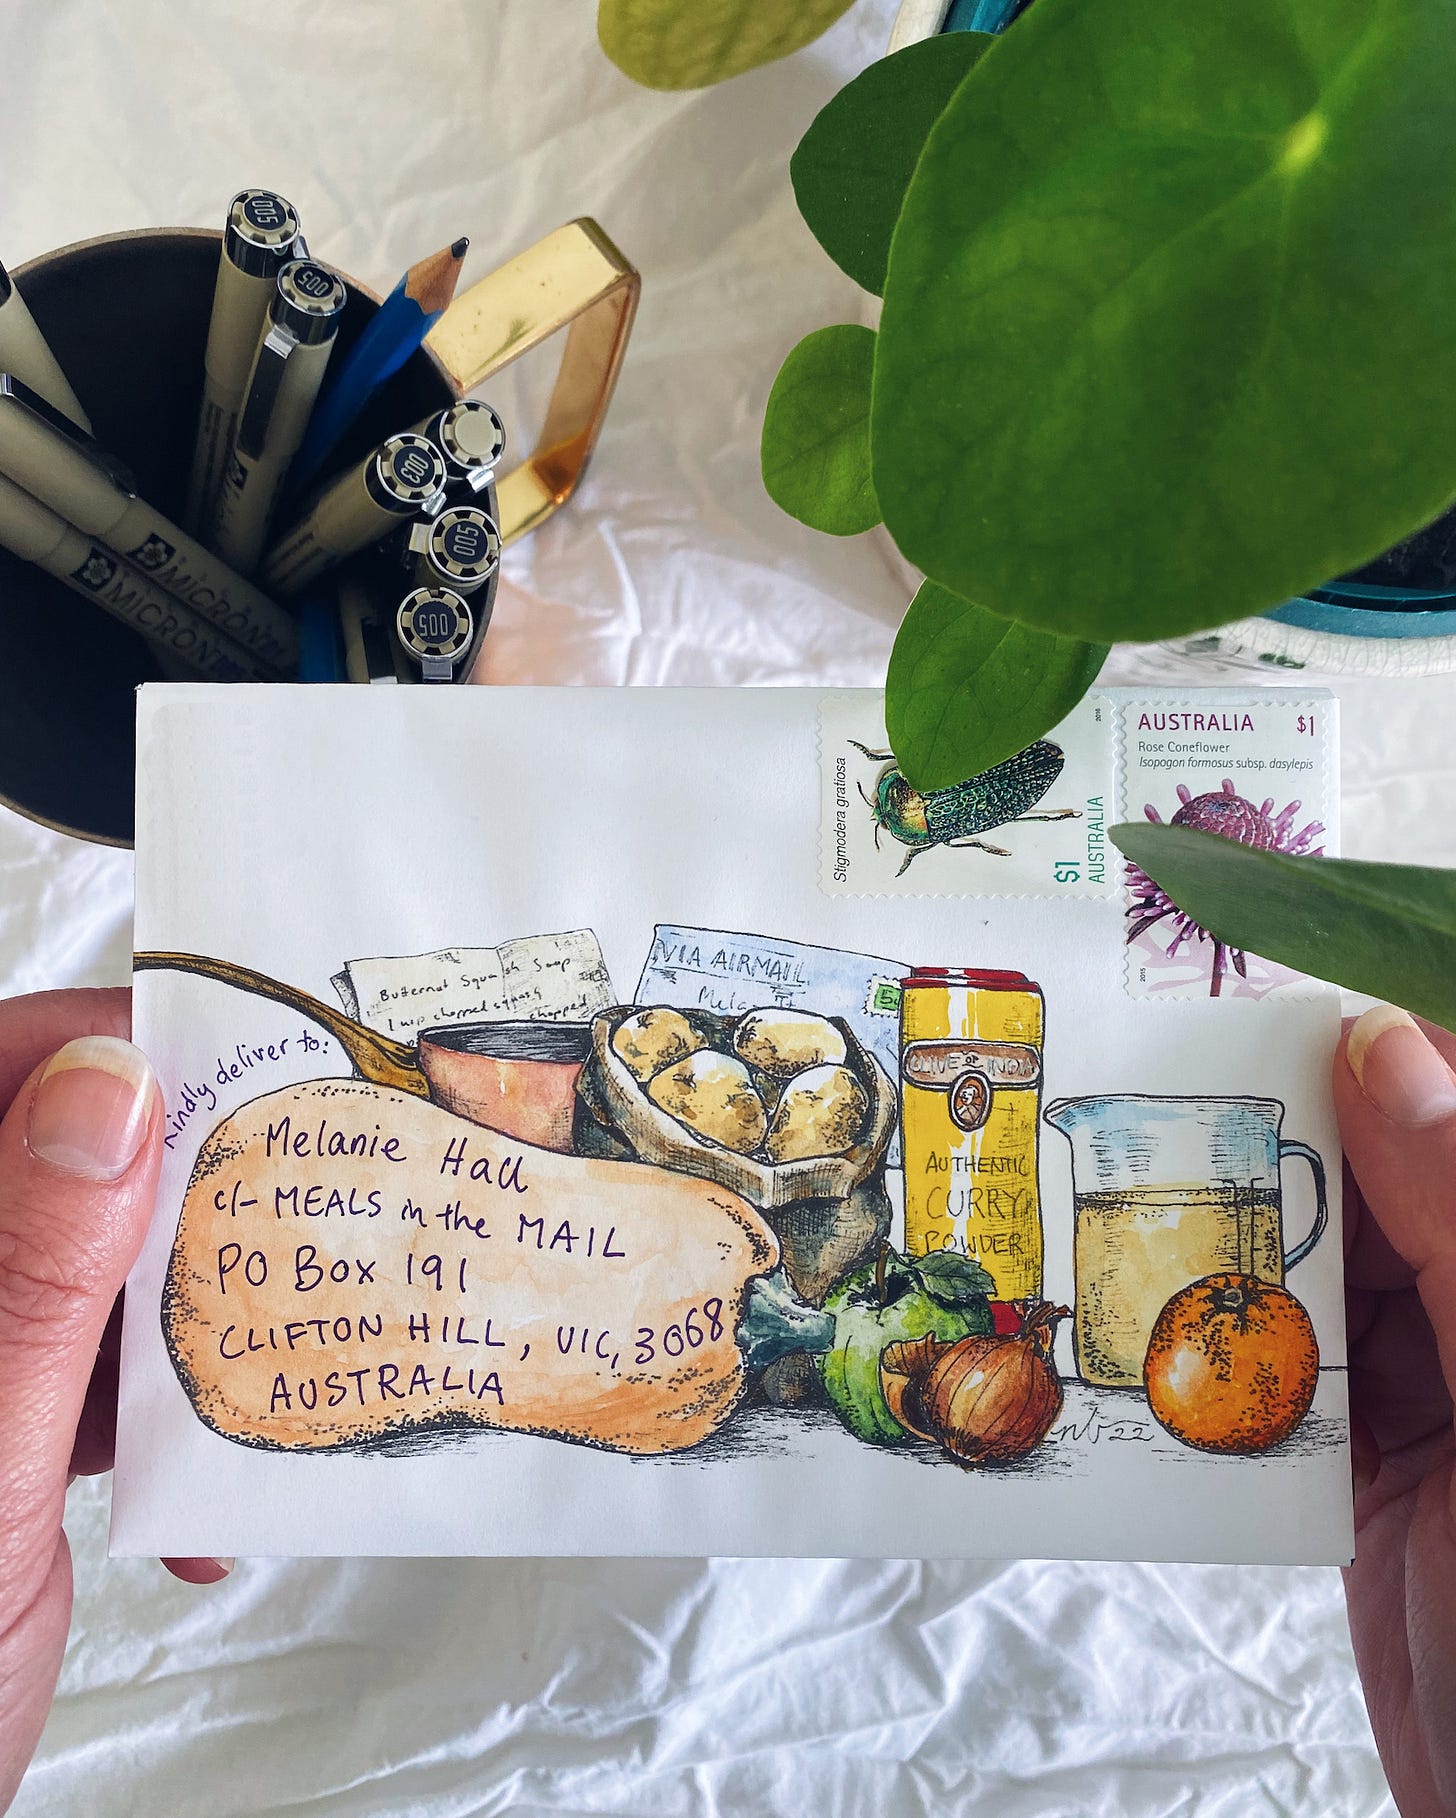 005
005
003
005
005
MICRON
MICRON
Stigmodera gratiosa
2016
$1
AUSTRALIA
AUSTRALIA $1
Rose Coneflower
Isopogon formosus subsp. dasylepis
2015
Butternut Squash Soup
1 cup chopped squash
chopped
VIA AIRMAIL
OLIVE OF INDIA
AUTHENTIC
CURRY
POWDER
Kindly deliver to:
Melanie Hall
c/- MEALS in the MAIL
PO Box 191
CLIFTON HILL, VIC, 3068
AUSTRALIA
nb 22